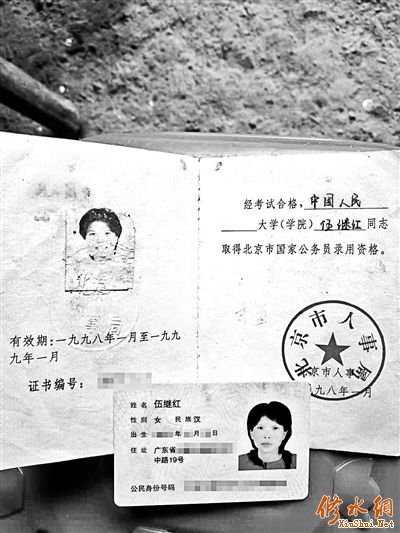 经考试合格，中国人民
大学(学院)伍继红同志
取得北京市国家公务员录用资格。
北京市人事局
京市人事
九八年一月
有效期：一九九八年一月至一九九
九年一月
证书编号：
姓名 伍继红
性别 女 民族 汉
出生 年 月 日
住址 广东省
中路19号
公民身份号码
修水網
XiuShui.Net